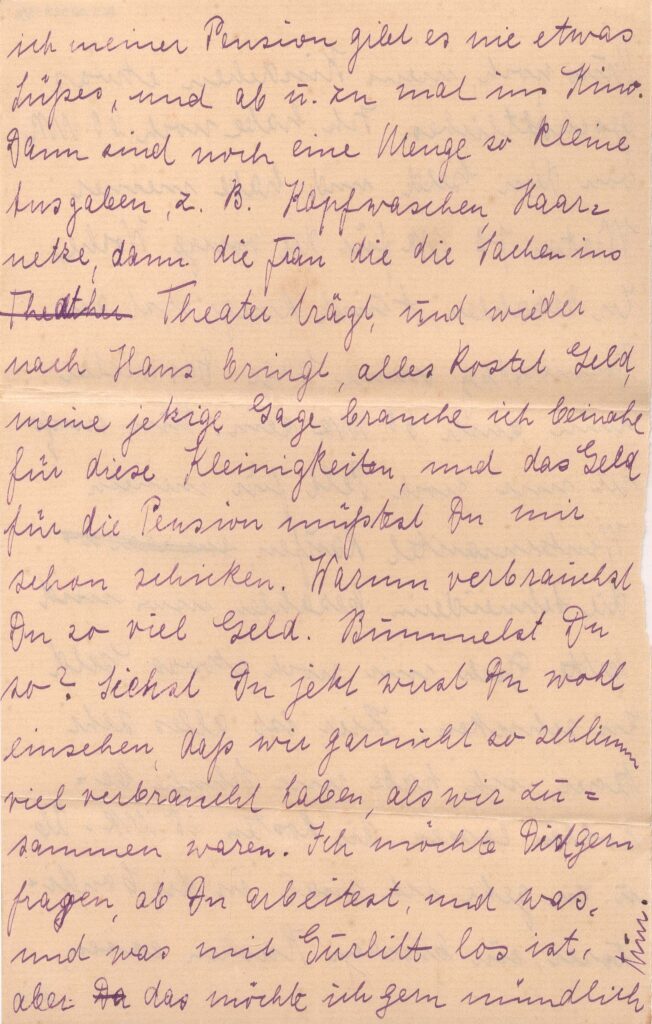 ich meiner Pension gibt es nie etwas
Süßes, und ab u. zu mal ins Kino.
Dann sind noch eine Menge so kleine
Ausgaben, z. B. Kopfwaschen, Haar=
netze, dann die Frau die die Sachen ins
Theather Theater trägt, und wieder
nach Haus bringt, alles kostet Geld,
meine jetzige Gage brauche ich beinahe
für diese Kleinigkeiten, und das Geld
für die Pension müßtest Du mir
schon schicken. Warum verbrauchst
Du so viel Geld. Bummelst Du
so? Siehst Du jetzt wirst Du wohl
einsehen, daß wir garnicht so schlimm
viel verbraucht haben, als wir zu=
sammen waren. Ich möchte Dich gern
fragen, ob Du arbeitest, und was,
und was mit Gurlitt los ist,
aber Da das möchte ich gern mündlich
tun.